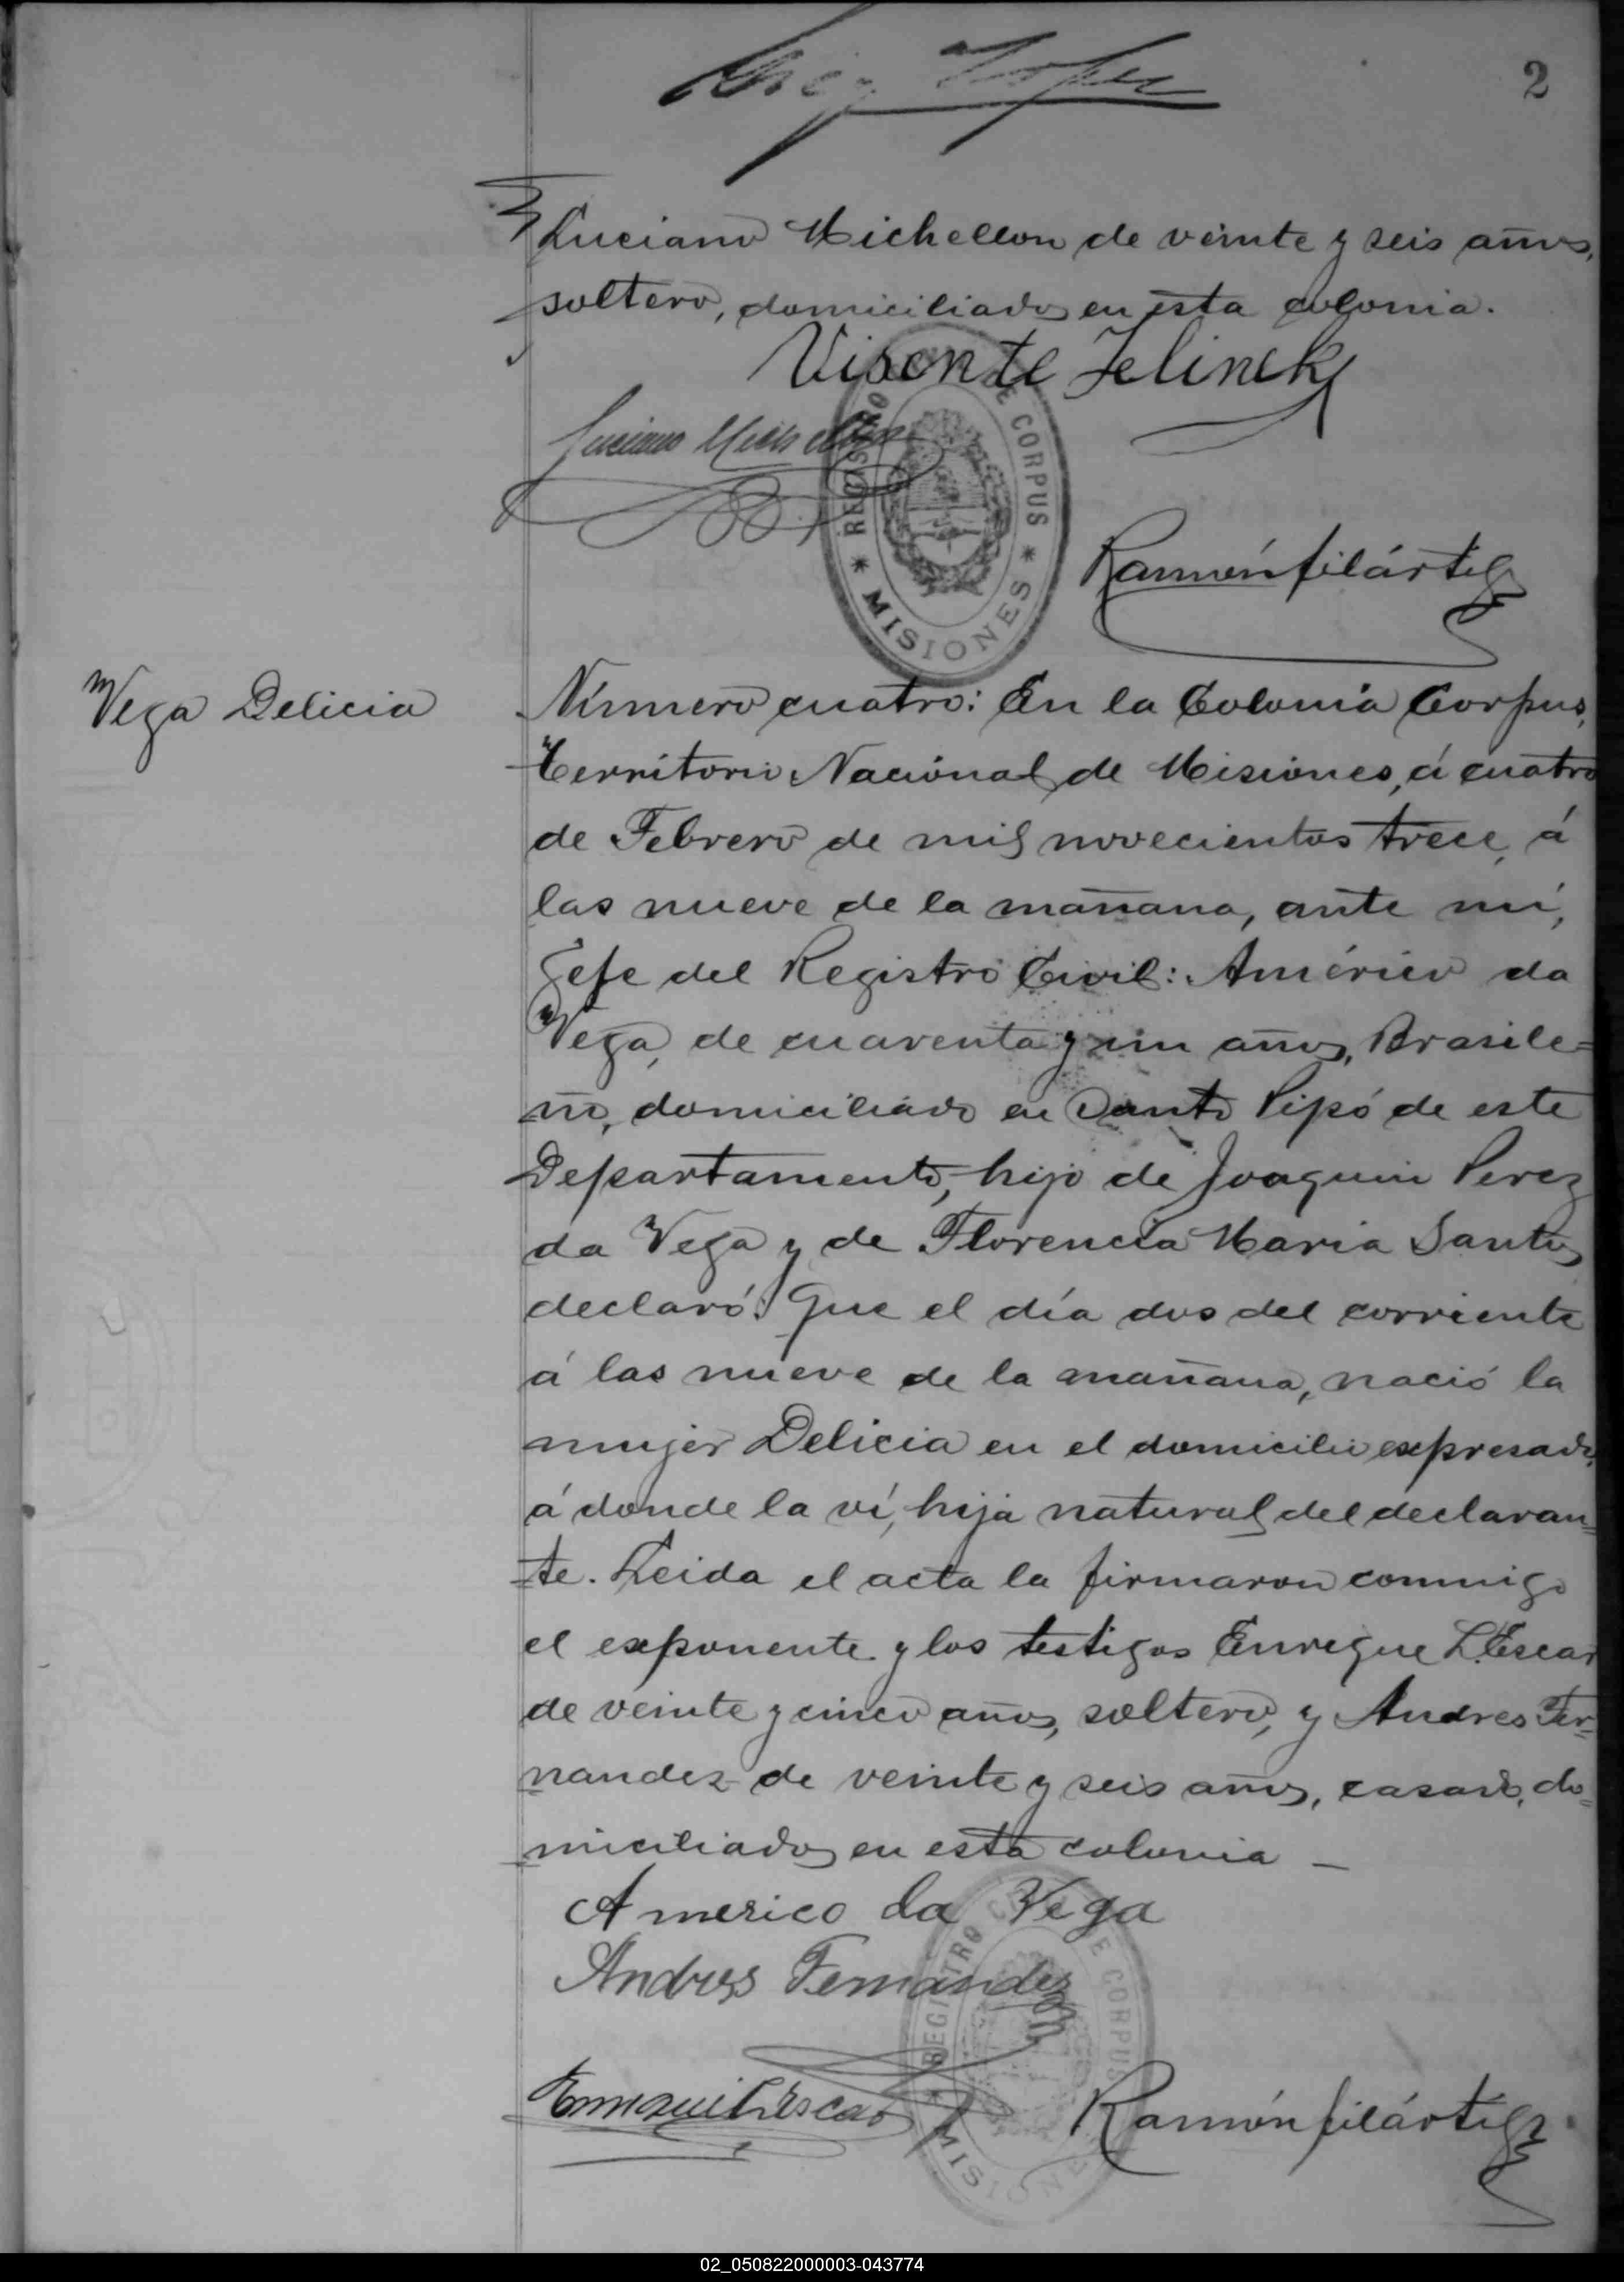 2
Luciano Michellon de veinte y seis años,
soltero, domiciliados en esta colonia.
Visente Jelinek
Luciano
REGISTRO DE CORPUS
* MISIONES *
Ramón filártiga
Vega Delicia
Número cuatro: En la Colonia Corpus,
Territorio Nacional de Misiones, á cuatro
de Febrero de mil novecientos trece, á
las nueve de la mañana, ante mí,
Gefe del Registro Civil: Américo da
Vega, de cuarenta y un años, Brasile=
ño, domiciliado en Santo Pipó de este
Departamento, hijo de Joaquin Perez
da Vega y de Florencia Maria Santos
declaró: Que el día dos del corriente
á las nueve de la mañana, nació la
mujer Delicia en el domicilio expresado,
á donde la ví, hija natural del declaran=
=te. Leida el acta la firmaron conmigo
el exponente y los testigos Enrique L'Escar
de veinte y cinco años, soltero, y Andres Fer=
nandez de veinte y seis años, casado, do=
miciliados en esta colonia —
Americo da Vega
Andres Fernandez
REGISTRO CIVIL DE CORPUS
MISIONES
Ramón filártiga
02_050822000003-043774